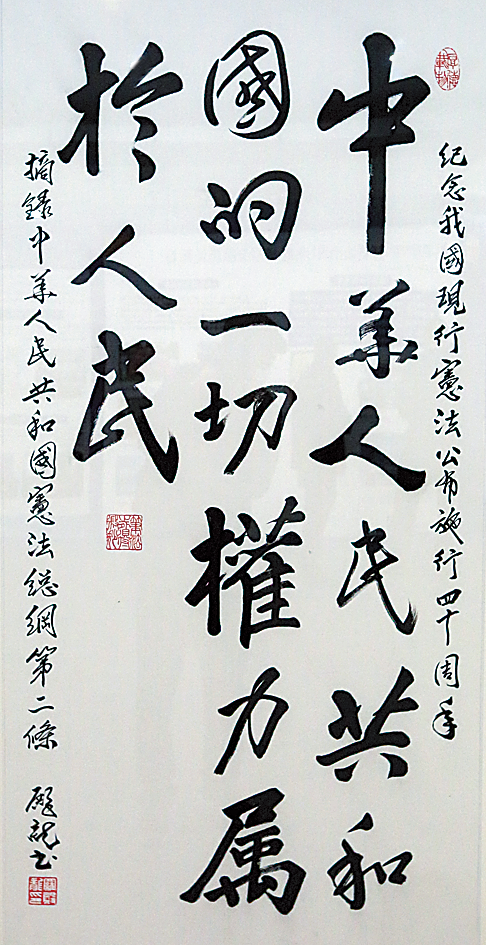 紀念我國現行憲法公布施行四十周年
中華人民共和
國的一切權力属
於人民
摘錄中華人民共和國憲法總綱第二條
龍书